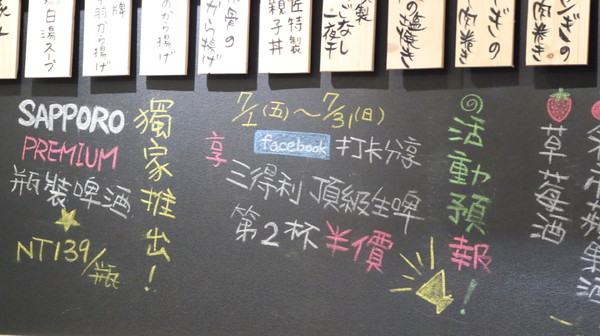 白湯スープ
手羽から揚げ
のから揚げ
骨の
から揚げ
匠特製
親子丼
製
ごなし
一夜干
の塩焼き
ぎの
肉巻き
ンギの
肉巻き
SAPPORO
PREMIUM
瓶裝啤酒
NT139/瓶
獨家推出!
7/1(五)~7/31(日)
享
facebook 打卡分享
三得利 頂級生啤
第2杯半價
活動預報!
草莓酒
蘋果酒